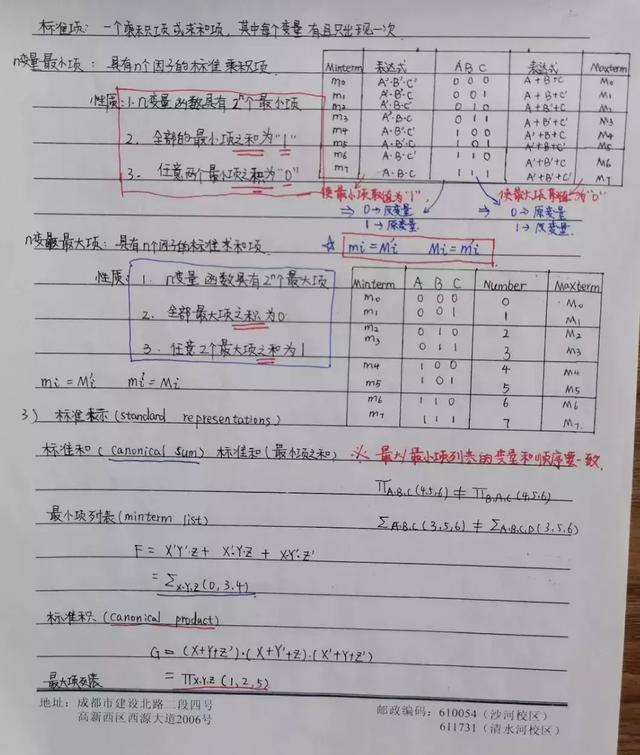 标准项: 一个乘积项或求和项, 其中每个变量有且只出现一次
n变量最小项: 具有n个因子的标准乘积项
性质: 1. n变量函数具有2ⁿ个最小项
2. 全部的最小项之和为"1"
3. 任意两个最小项之积为"0"
Minterm 表达式 A B C 表达式 Maxterm
m0 A'·B'·C' 0 0 0 A+B+C M0
m1 A'·B'·C 0 0 1 A+B+C' M1
m2 A'·B·C' 0 1 0 A+B'+C M2
m3 A'·B·C 0 1 1 A+B'+C' M3
m4 A·B'·C' 1 0 0 A'+B+C M4
m5 A·B'·C 1 0 1 A'+B+C' M5
m6 A·B·C' 1 1 0 A'+B'+C M6
m7 A·B·C 1 1 1 A'+B'+C' M7
使最小项取值为"1" 使最大项取值为"0"
⇒ 0→反变量 ⇒ 0→原变量
1→原变量 1→反变量
n变量最大项: 具有n个因子的标准求和项
☆ mi = Mi' Mi = mi'
性质: 1. n变量函数具有2ⁿ个最大项
2. 全部最大项之积为0
3. 任意2个最大项之和为1
Minterm A B C Number Maxterm
m0 0 0 0 0 M0
m1 0 0 1 1 M1
m2 0 1 0 2 M2
m3 0 1 1 3 M3
m4 1 0 0 4 M4
m5 1 0 1 5 M5
m6 1 1 0 6 M6
m7 1 1 1 7 M7
mi = Mi' mi' = Mi
3) 标准表示 (standard representations)
标准和 (canonical sum) 标准和 (最小项之和) ※ 最大/最小项列表的变量和顺序要一致
∏A.B.C(4.5.6) ≠ ∏B.A.C(4.5.6)
最小项列表 (minterm list)
∑A.B.C(3,5,6) ≠ ∑A.B.C.D(3,5,6)
F = X'Y'·Z + X'·Y·Z + X·Y'·Z'
= ∑X.Y.Z(0,3.4)
标准积 (canonical product)
G = (X+Y+Z')·(X+Y'+Z)·(X'+Y+Z')
最大项列表 = ∏X.Y.Z(1,2,5)
地址: 成都市建设北路二段四号 邮政编码: 610054 (沙河校区)
高新西区西源大道2006号 611731 (清水河校区)